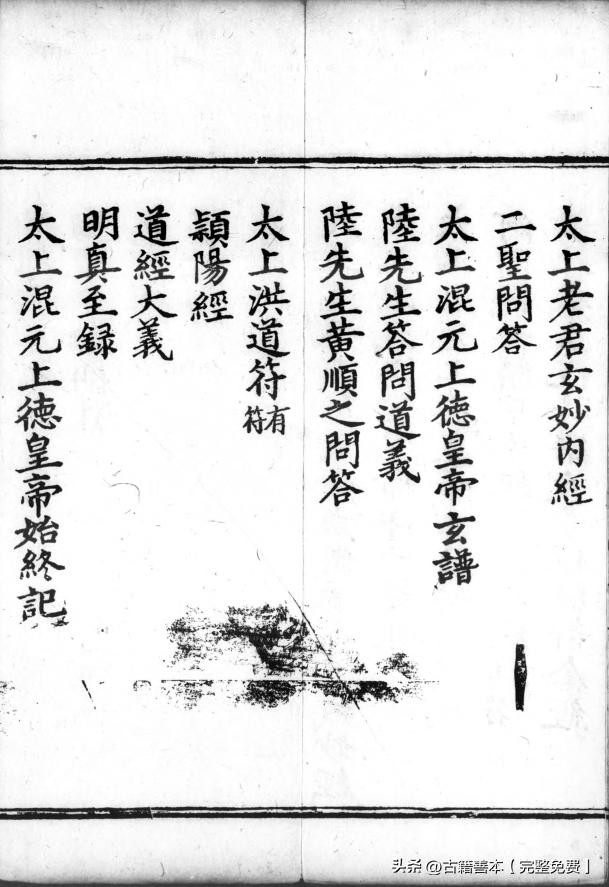 太上老君玄妙内經
二聖問答
太上混元上德皇帝玄譜
陸先生答問道義
陸先生黃順之問答
太上洪道符有符
潁陽經
道經大義
明真至録
太上混元上德皇帝始終記
头条 @古籍善本【完整免费】